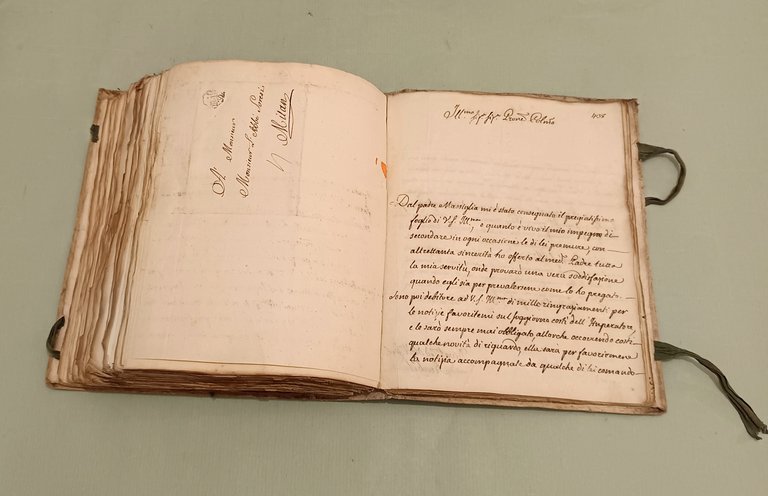 A Monsieur
Monsieur L'Abbé
Milan
Ill.mo Sig.r Sig.r Prone Colmo
Dal padre Massiglia mi è stato consegnato il pregiatissimo
foglio di V.S. Ill.ma, e quanto è vivo il mio impegno di
secondare in ogni occasione le di lei premure, con
altrettanta sincerità ho offerto al med.o Padre tutta
la mia servitù, onde provarò una vera soddisfazione
quando egli sia per prevalersene come lo ho pregato.
Sono poi debitore ad V.S. Ill.ma di mille ringraziamenti per
le notizie favoritemi sul soggiorno costì dell'Imperatore,
e le sarò sempre mai obbligato, allorchè occorrendo costì
qualche novità di riguardo, ella sarà per favorirmene
la notizia accompagnata da qualche di lei comando